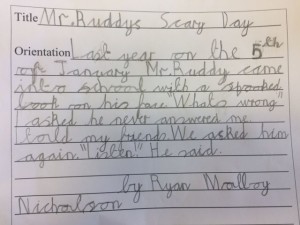 Title Mr.Ruddys Scary Day
Orientation Last year on the 5th
of January Mr.Ruddy came
into school with a spooked
look on his face "Whats wrong"
I asked he never answered me
I told my friends We asked him
again. "Listen" He said.
by Ryan Malloy
Nicholson